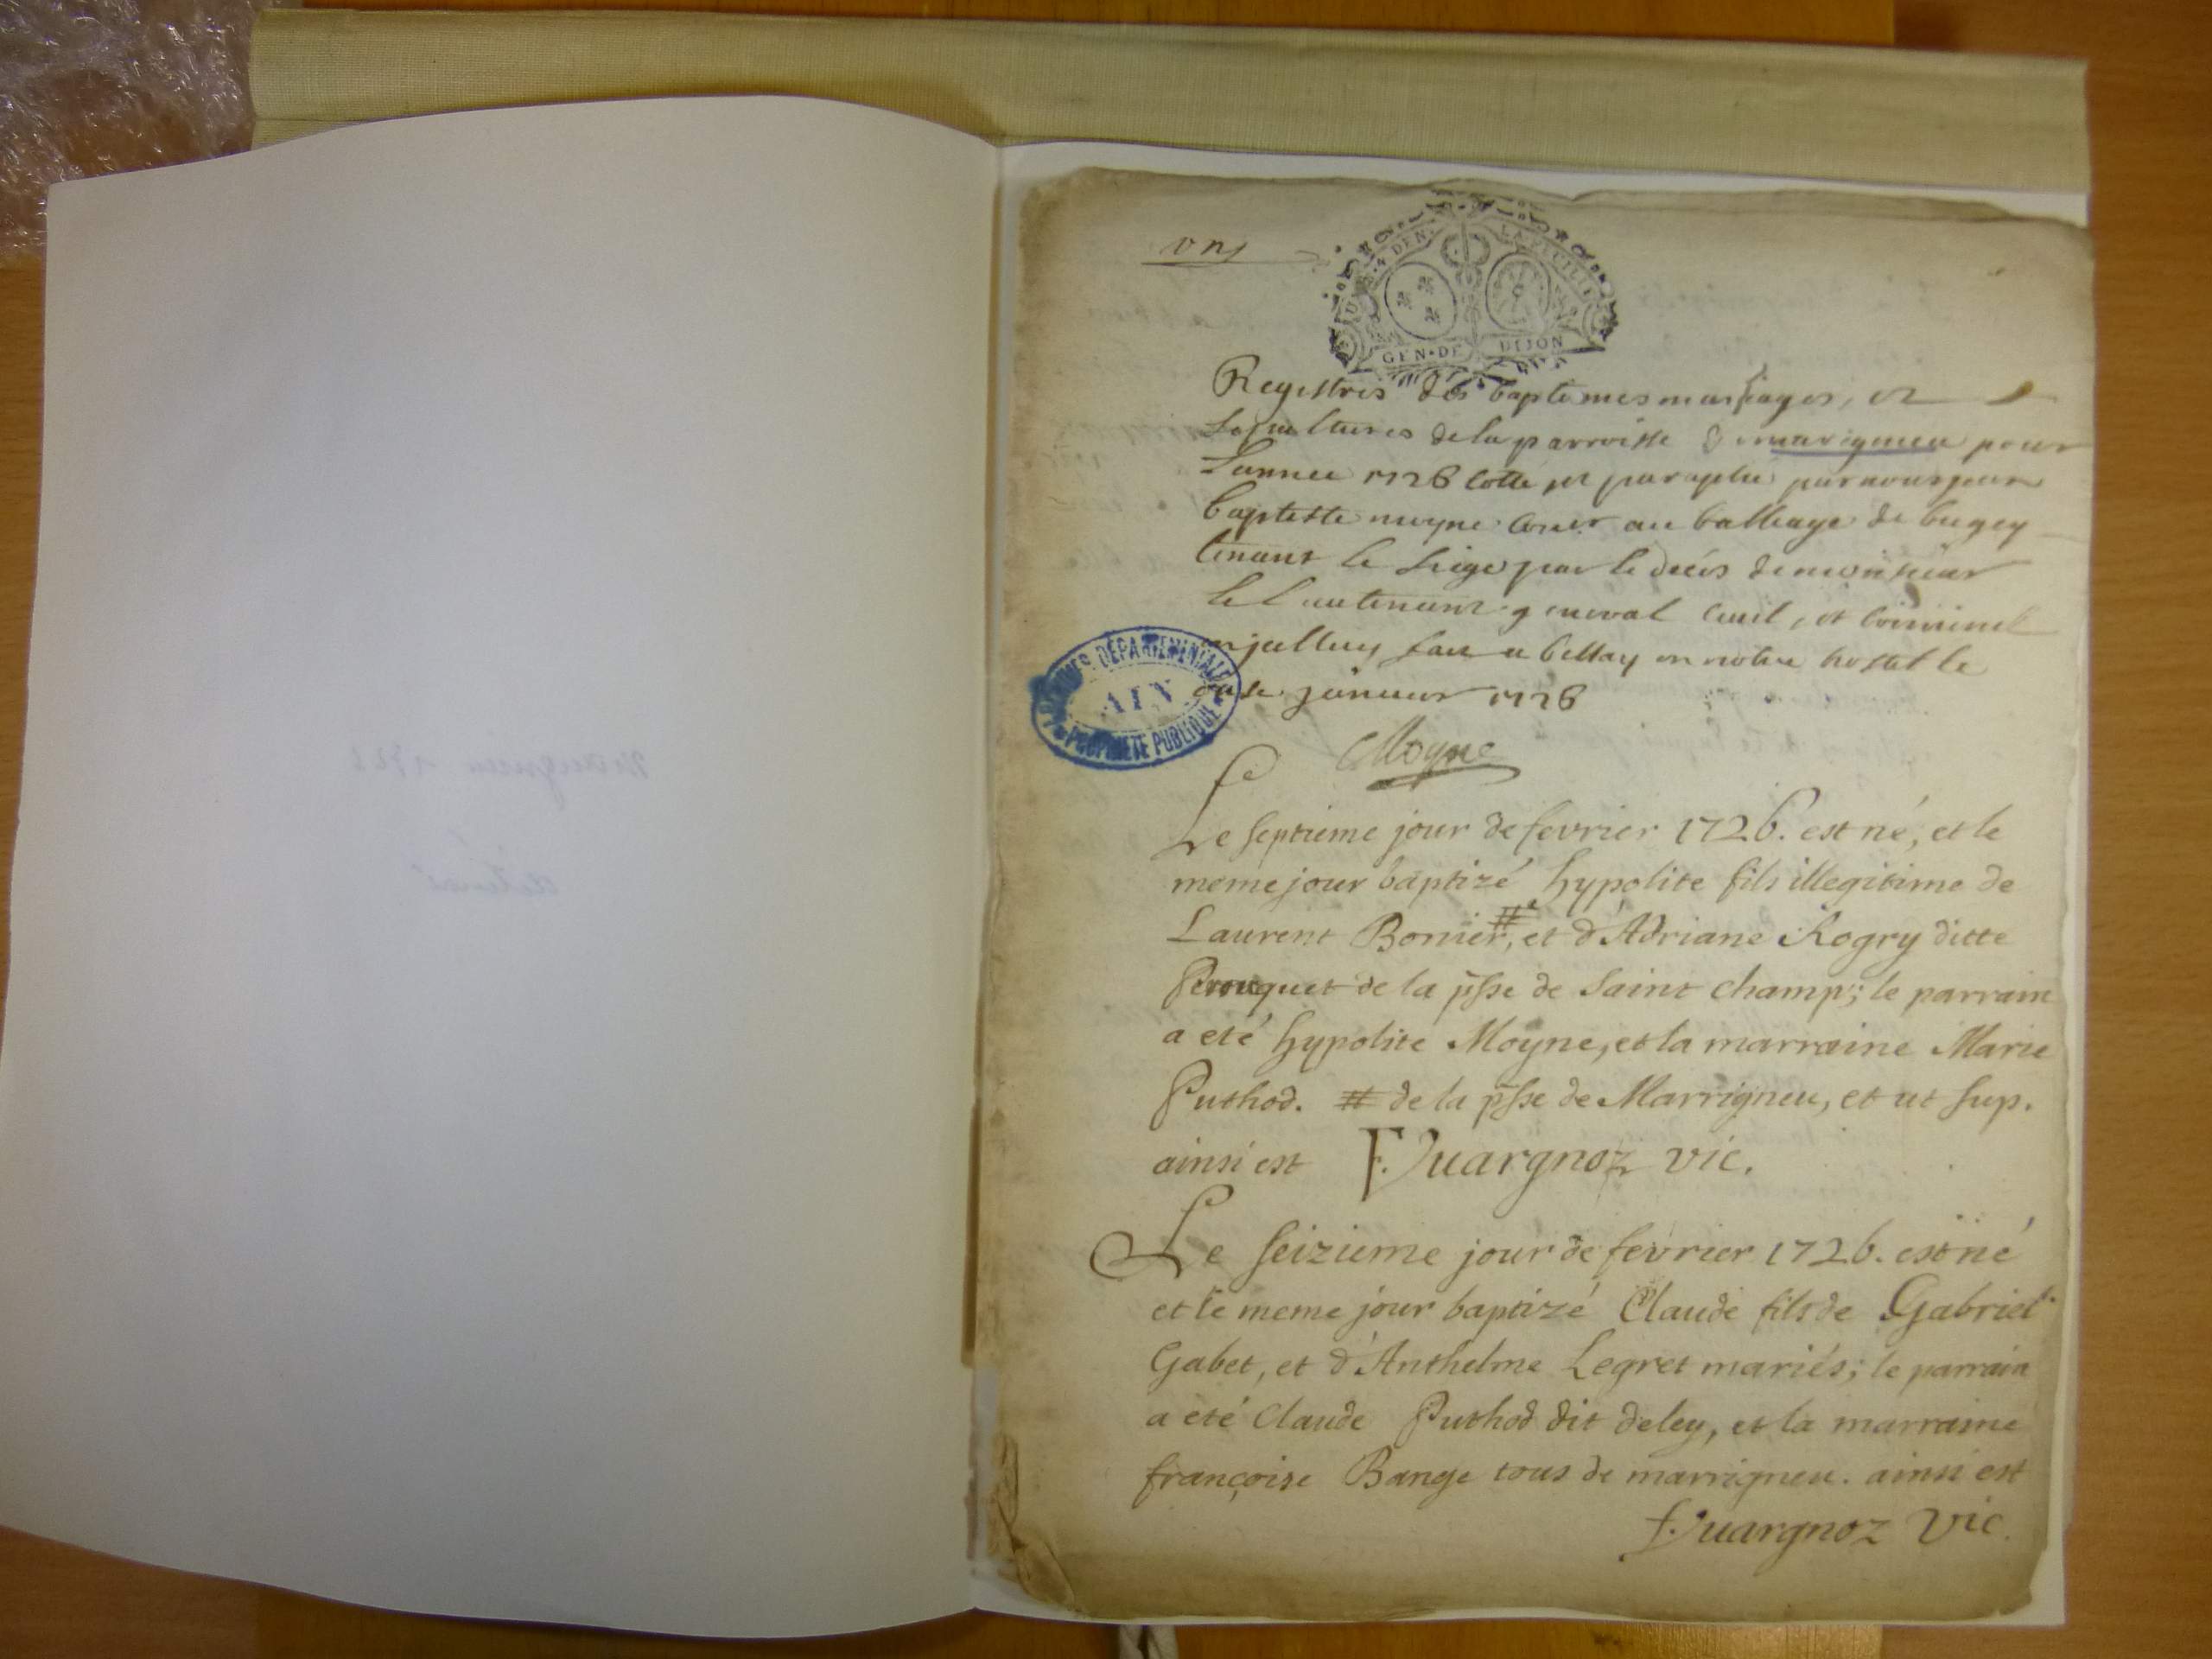 vn
LA FEUILLE
GEN·DE DIJON
Registres des baptemes mariages, et
sepultures de la parroisse de marigneu pour
l'annee 1726 cotté et paraphé par nous jean
baptiste moyne Coner au balliage de bugey
tenant le siege par le decés de monsieur
le lieutenant general civil, et criminel
fait a bellay en notre hostel le
onse januier 1726
Moyne
ARCHIVES DÉPARTEMENTALES
AIN
PROPRIÉTÉ PUBLIQUE
Le septieme jour de fevrier 1726. est né, et le
meme jour baptizé hypolite fils illegitime de
Laurent Bonier, # et d'Adriane Rogry ditte
Perouquet de la psse de Saint Champ; le parrain
a eté hypolite Moyne, et la marraine Marie
Puthod. # de la psse de Marrigneu, et ut sup.
ainsi est F. Vuargnoz vic.
Le seizieme jour de fevrier 1726. est né
et le meme jour baptizé Claude fils de Gabriel
Gabet, et d'Anthelme Legret mariés; le parrain
a eté Claude Puthod dit deley, et la marraine
françoise Bange tous de marrigneu. ainsi est
F. Vuargnoz Vic.